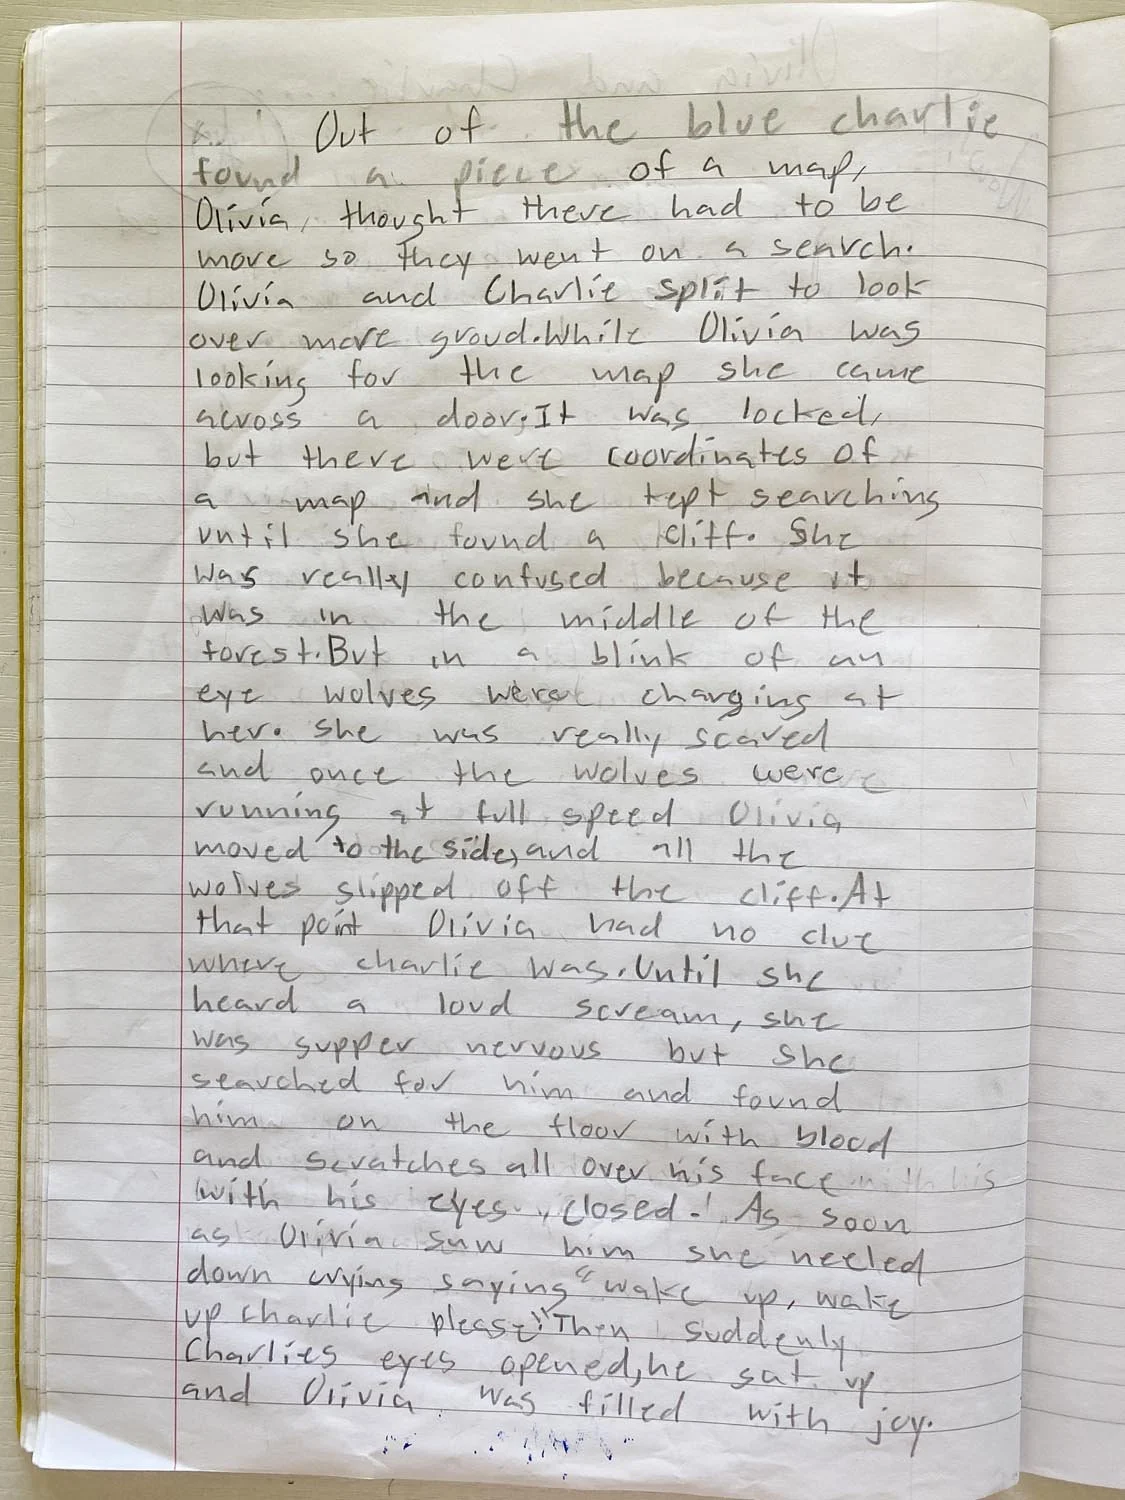 Out of the blue charlie
found a piece of a map,
Olivia, thought there had to be
more so they went on a search.
Olivia and Charlie split to look
over more groud. While Olivia was
looking for the map she came
across a door. It was locked,
but there were coordinates of
a map and she kept searching
until she found a cliff. She
was really confused because it
was in the middle of the
forest. But in a blink of an
eye wolves were charging at
her. she was really scared
and once the wolves were
running at full speed Olivia
moved to the side, and all the
wolves slipped off the cliff. At
that point Olivia had no clue
where charlie was. Until she
heard a loud scream, she
was supper nervous but she
searched for him and found
him on the floor with blood
and scratches all over his face
with his eyes closed.! As soon
as Olivia saw him she neeled
down crying saying "wake up, wake
up charlie please!" Then suddenly
Charlies eyes opened, he sat up
and Olivia was filled with joy.